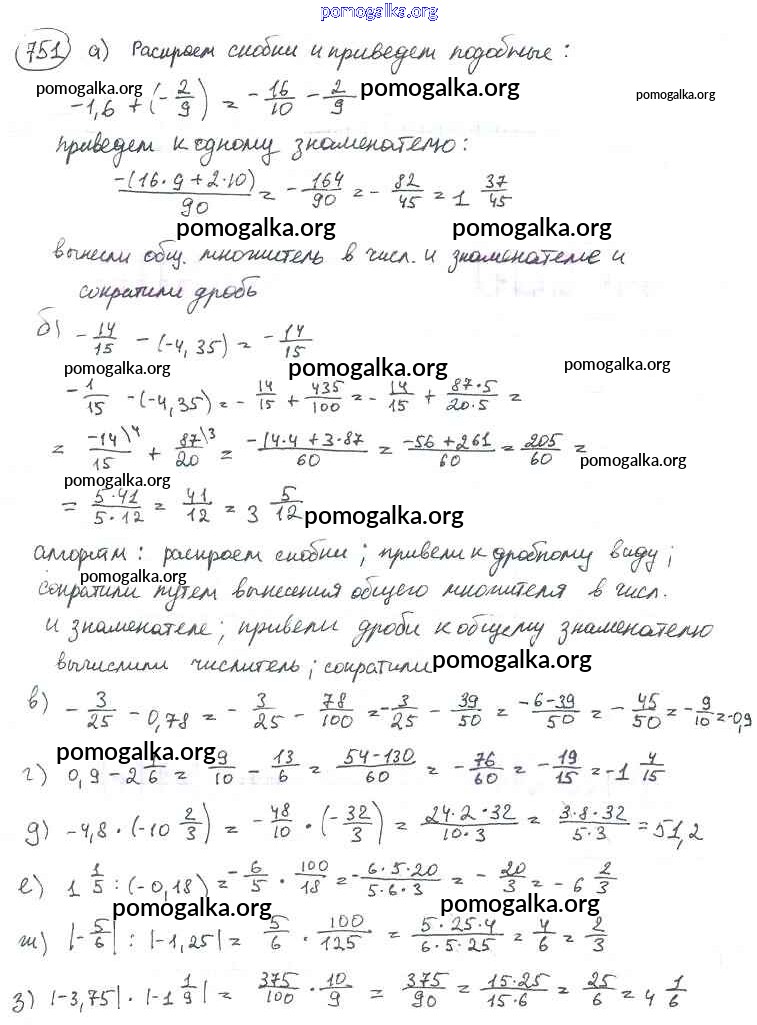 pomogalka.org
751 а) Раскроем скобки и приведем подобные:
pomogalka.org pomogalka.org pomogalka.org
-1,6 + (-2/9) = -16/10 - 2/9
приведем к одному знаменателю:
-(16·9+2·10)/90 = -164/90 = -82/45 = 1 37/45
pomogalka.org pomogalka.org
вынесли общ. множитель в числ. и знаменателе и
сократили дробь
б) -14/15 - (-4,35) = -14/15
pomogalka.org pomogalka.org pomogalka.org
-1/15 - (-4,35) = -14/15 + 435/100 = -14/15 + 87·5/20·5 =
= -14\4/15 + 87\3/20 = -14·4+3·87/60 = -56+261/60 = 205/60 =
pomogalka.org pomogalka.org
= 5·41/5·12 = 41/12 = 3 5/12 pomogalka.org
алгоритм: раскроем скобки; привели к дробному виду;
pomogalka.org
сократили путем вынесения общего множителя в числ.
и знаменателе; привели дроби к общему знаменателю
вычислили числитель; сократили pomogalka.org
в) -3/25 - 0,78 = -3/25 - 78/100 = -3/25 - 39/50 = -6-39/50 = -45/50 = -9/10 = -0,9
pomogalka.org
г) 0,9 - 2 1/6 = 9/10 - 13/6 = 54-130/60 = -76/60 = -19/15 = -1 4/15
д) -4,8 · (-10 2/3) = -48/10 · (-32/3) = 24·2·32/10·3 = 3·8·32/5·3 = 51,2
е) 1 1/5 : (-0,18) = -6/5 · 100/18 = -6·5·20/5·6·3 = -20/3 = -6 2/3
pomogalka.org pomogalka.org
ж) |-5/6| : |-1,25| = 5/6 · 100/125 = 5·25·4/6·5·25 = 4/6 = 2/3
pomogalka.org pomogalka.org
з) |-3,75| · |-1 1/9| = 375/100 · 10/9 = 375/90 = 15·25/15·6 = 25/6 = 4 1/6